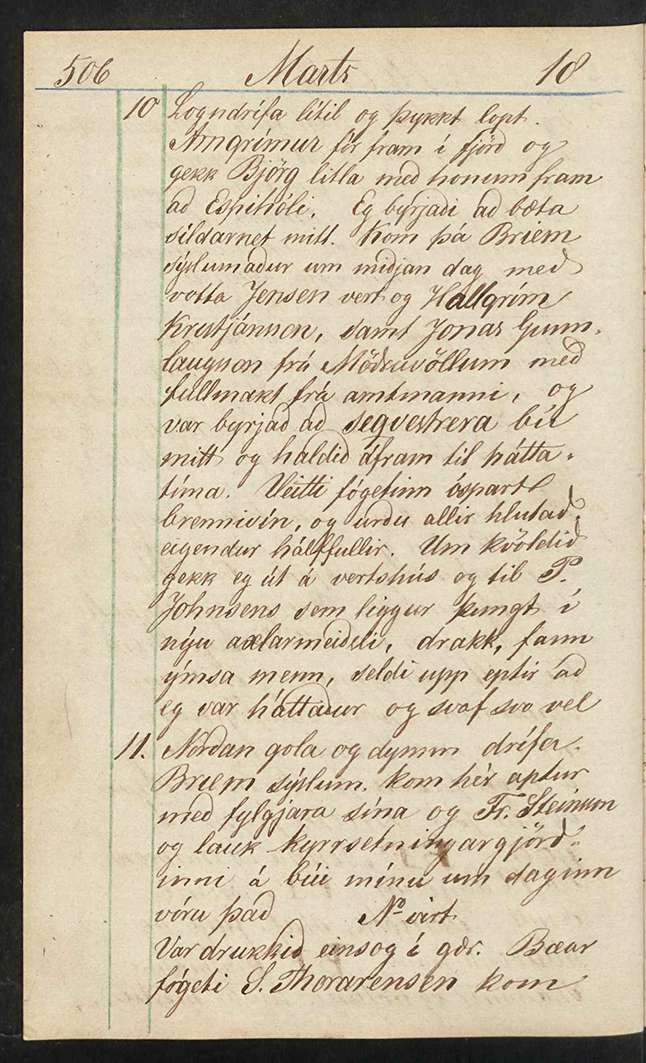 506 Marts 18
10 Logndrífa lítil og þykkt lopt.
Arngrímur fór fram í fjörd og
gekk Björg litla med honum fram
ad Espihóli. Eg byrjadi ad bæta
síldarnet mitt. Kom þá Briem
sýslumadur um midjan dag med
votta Jensen vert og Hallgrím
Kristjánsson, samt Jónas Gunn-
laugsson frá Mödruvöllum med
fullmakt frá amtmanni, og
var byrjad ad seqvestrera bú
mitt og haldid áfram til hátta-
tíma. Veitti fógetinn óspart
brennivín, og urdu allir hlutad-
eigendur hálffullir. Um kvöldid
gekk eg út á vertshús og til P.
Johnsens sem liggur þungt í
nýu axlarmeidsli, drakk, fann
ýmsa menn, seldi upp eptir ad
eg var háttadur og svaf svo vel
11. Nordan gola og dymm drífa.
Briem sýslum. kom hér aptur
med fylgjara sína og Fr. Steinsson
og lauk kyrrsetningargjörd-
inni á búi mínu um daginn
vóru þad No virt
Var drukkid einsog í gær. Bæar
fógeti S. Thorarensen kom